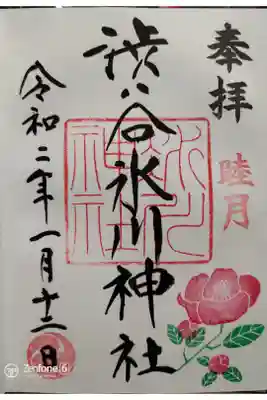 奉拝
睦月
渋谷氷川神社
令和二年一月十二日
Zenfone 6